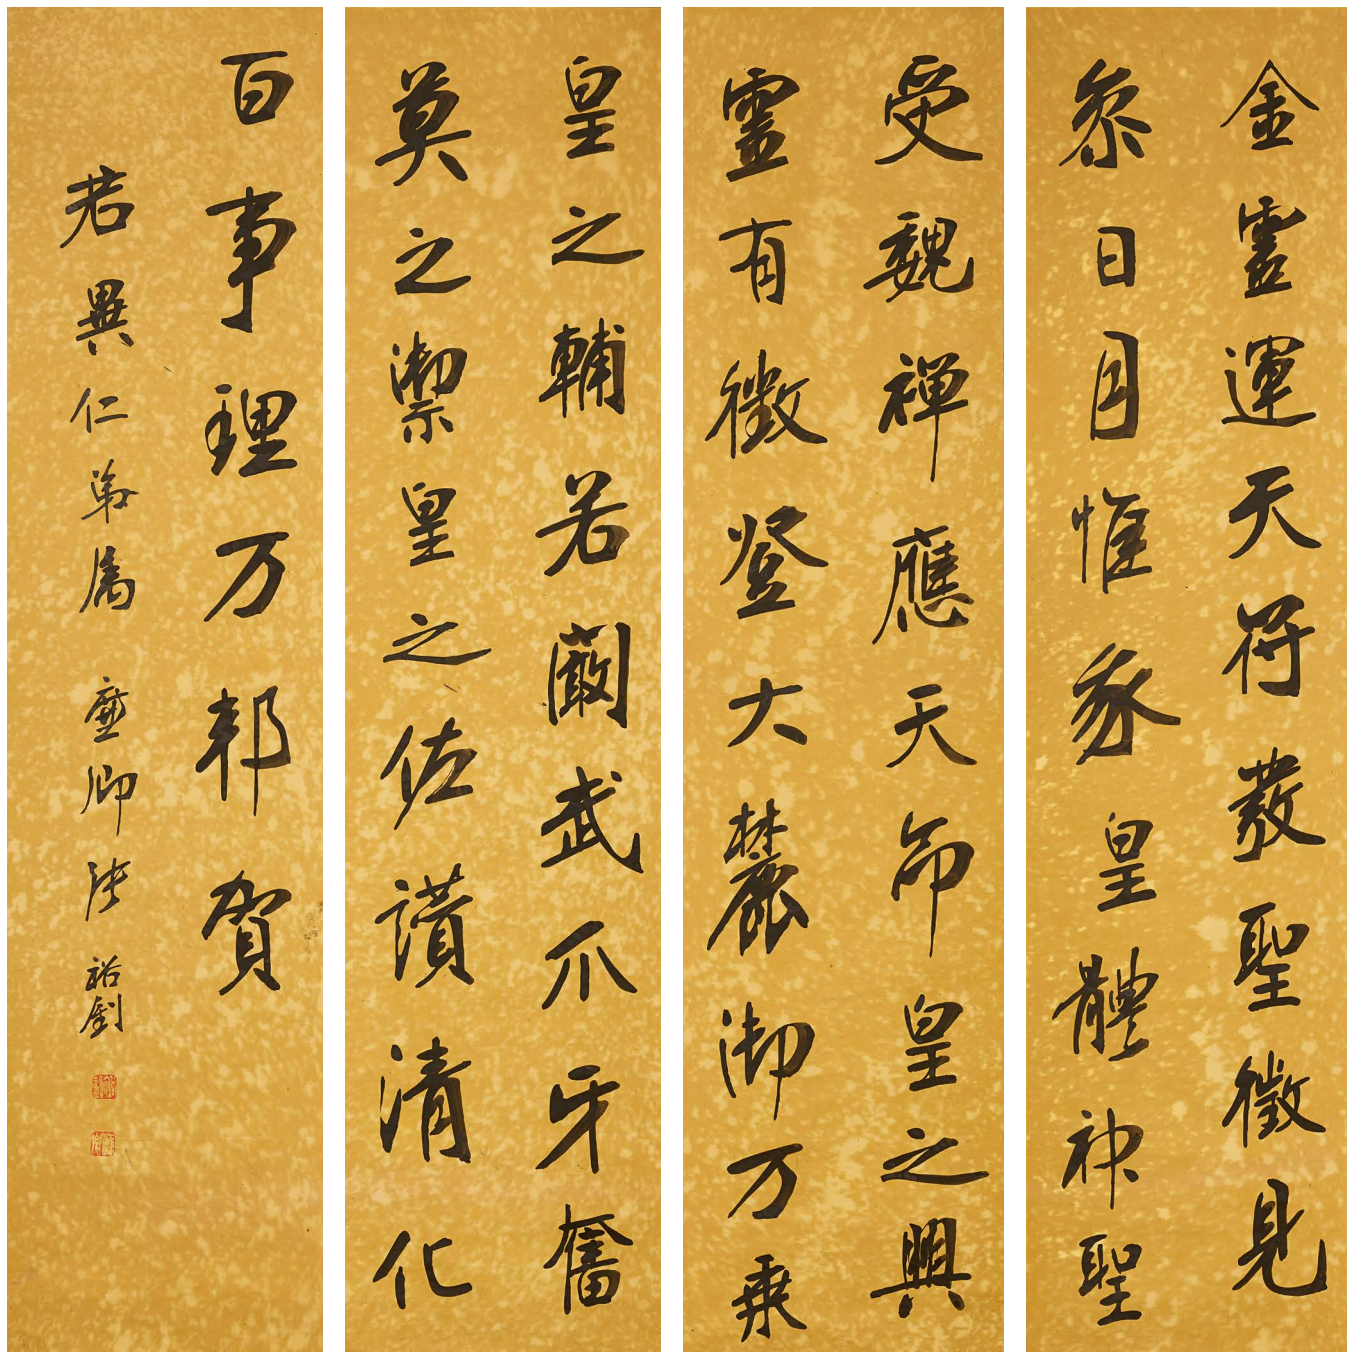 金靈運天符發聖徵見
參日月惟我皇體神聖
受魏禪應天命皇之興
靈有徵登大麓御万乘
皇之輔若闞武爪牙奮
莫之禦皇之佐讚清化
百事理万邦賀
若異仁弟属 廉卿張裕釗